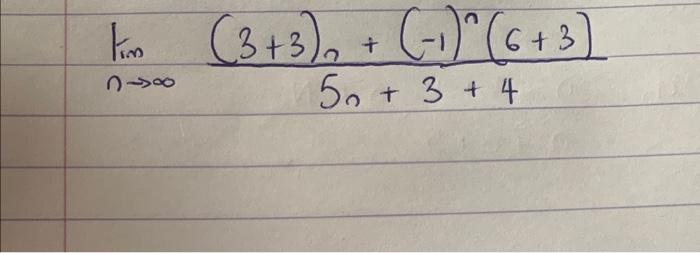 lim (3+3)n + (-1)^n (6+3)
n→∞ 5n + 3 + 4